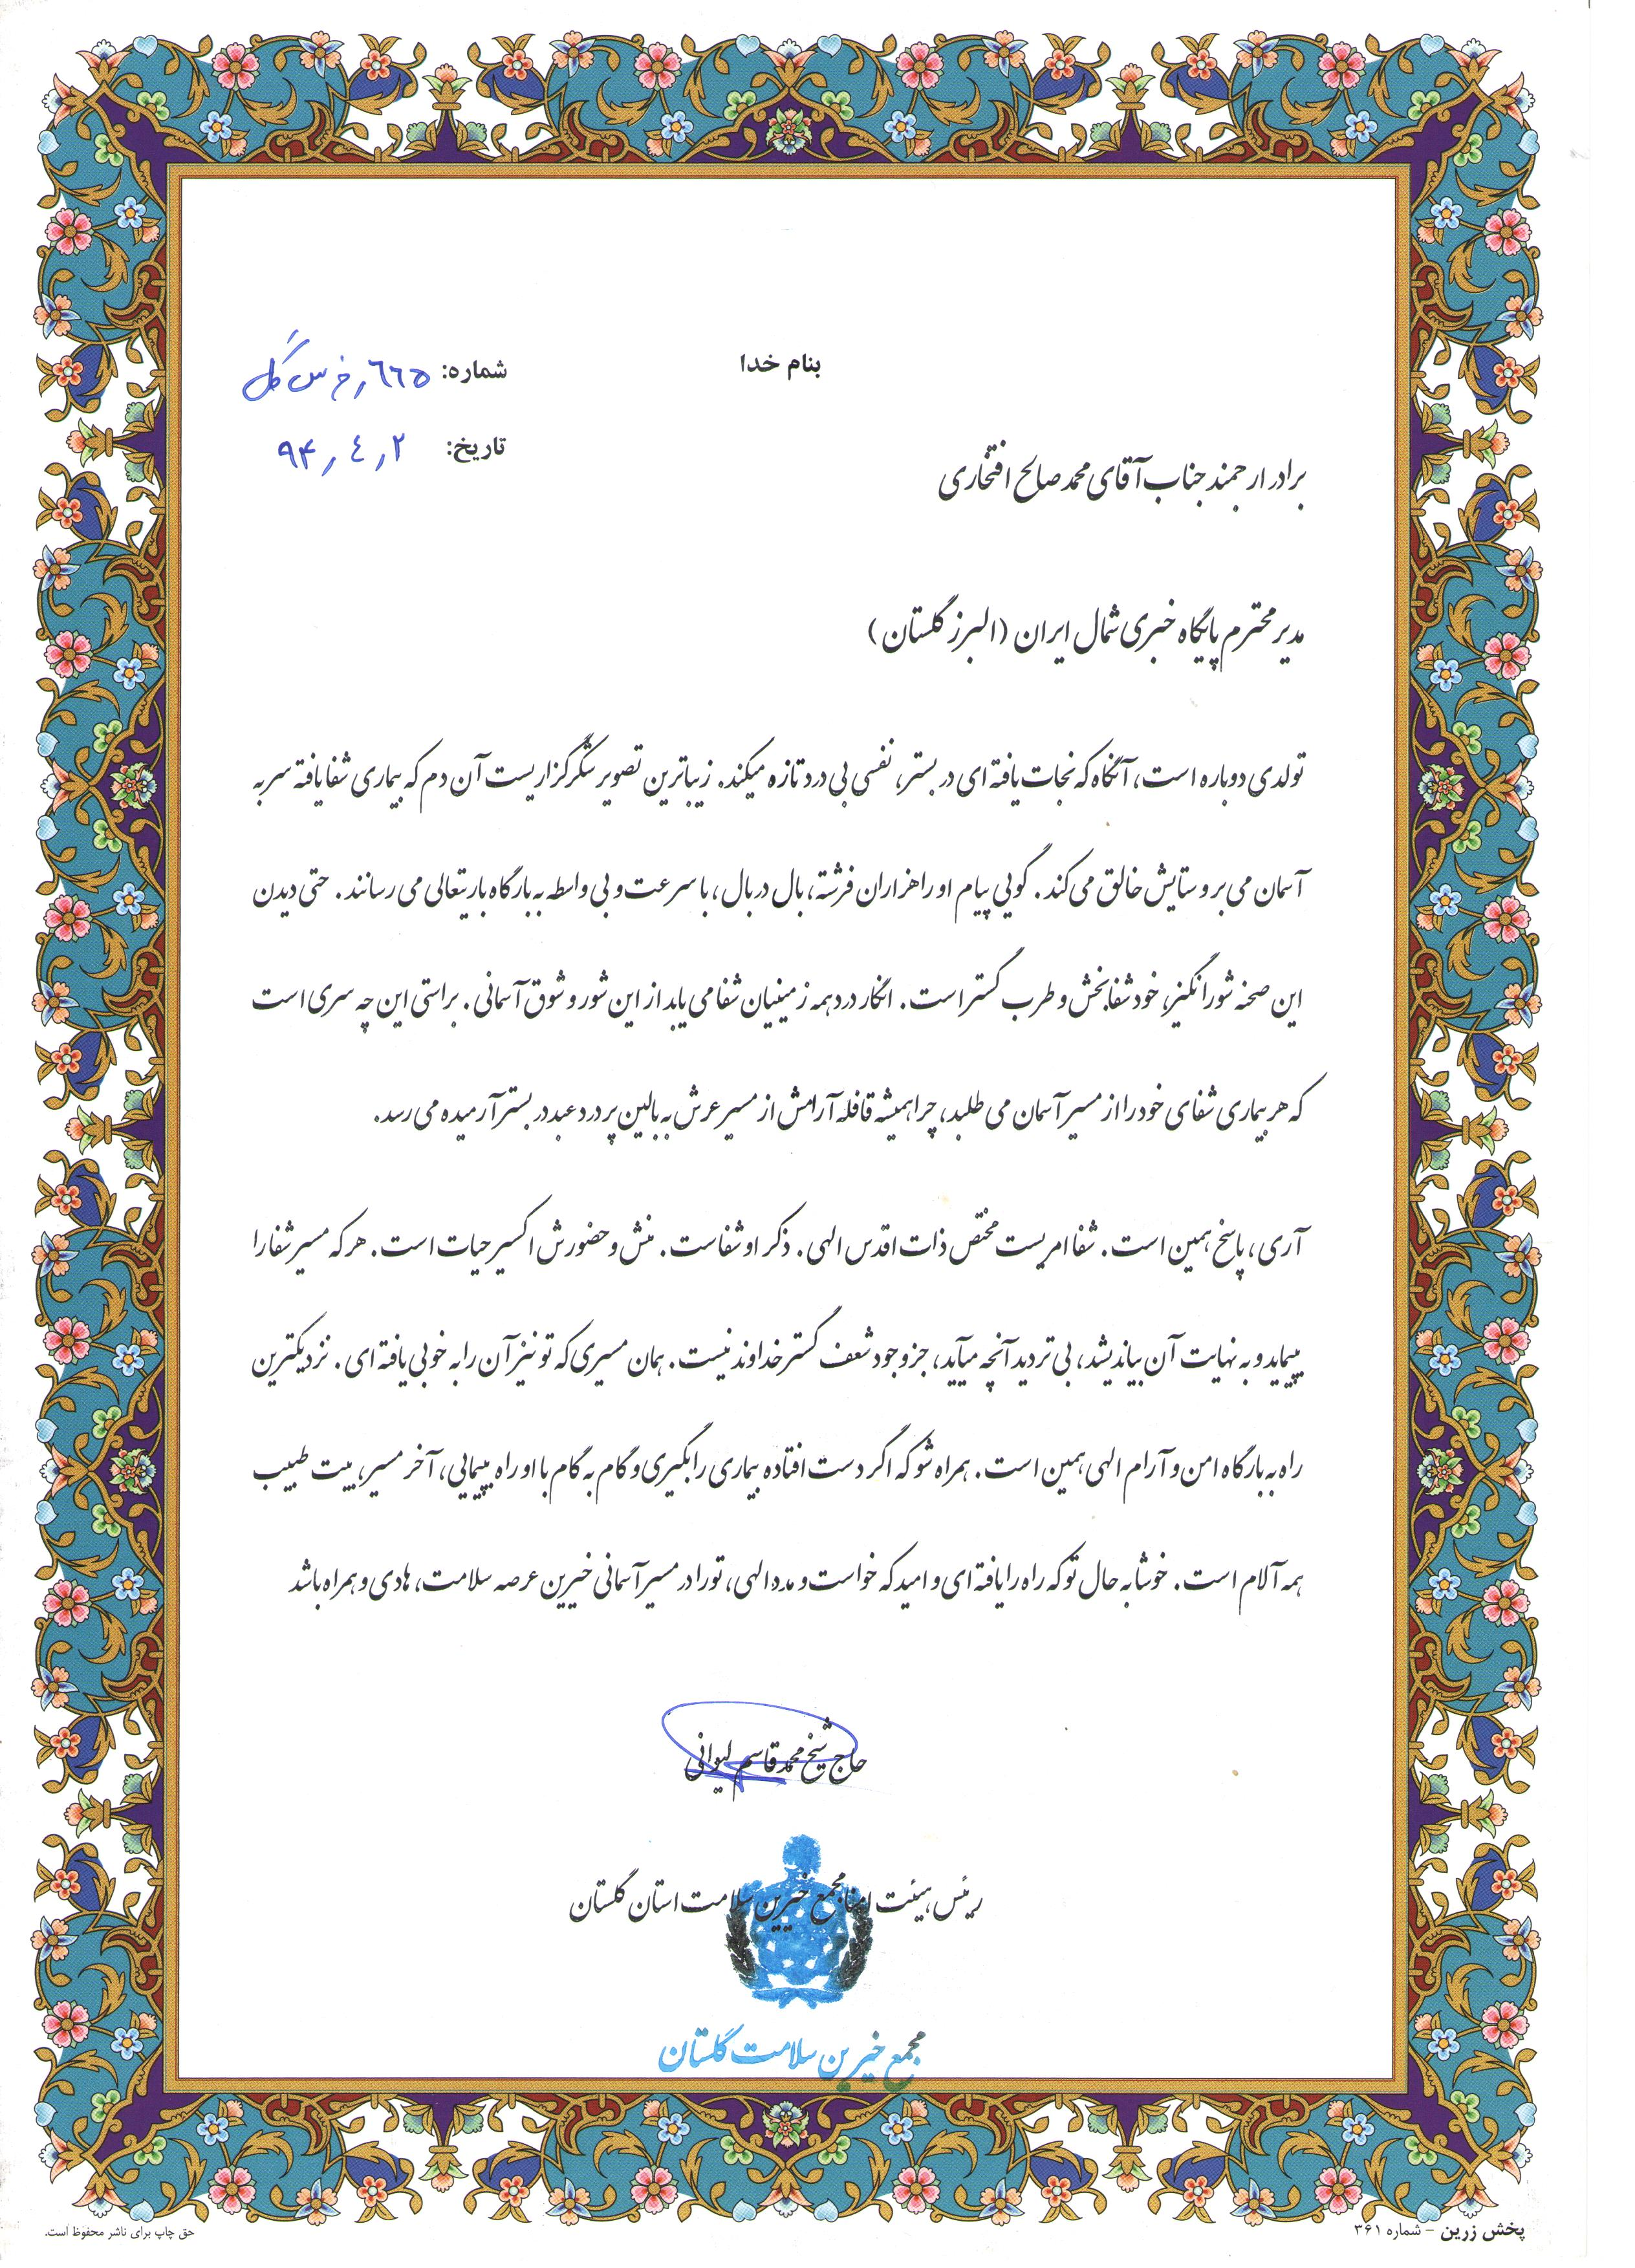 بنام خدا
شماره: ٦٦٥ر خ س گل
تاریخ: ٩۴ر٤ر٢
برادر ارجمند جناب آقای محمد صالح افتخاری
مدیر محترم پایگاه خبری شمال ایران (البرز گلستان)
تولدی دوباره است، آنگاه که نجات یافته ای در بستر، نفسی بی درد تازه میکند. زیباترین تصویر شکرگزاریست آن دم که بیماری شفا یافته سر به
آسمان می بر و ستایش خالق می کند. گویی پیام او را هزاران فرشته، بال در بال، با سرعت و بی واسطه به بارگاه باریتعالی می رسانند. حتی دیدن
این صحنه شورانگیز، خود شفابخش و طرب گستر است. انگار درد همه زمینیان شفا می یابد از این شور و شوق آسمانی. براستی این چه سری است
که هر بیماری شفای خود را از مسیر آسمان می طلبد، چرا همیشه قافله آرامش از مسیر عرش به بالین پر درد عبد در بستر آرمیده می رسد.
آری، پاسخ همین است. شفا امریست مختص ذات اقدس الهی. ذکر او شفاست. منش و حضورش اکسیر حیات است. هر که مسیر شفا را
بپیماید و به نهایت آن بیاندیشد، بی تردید آنچه میآید، جز وجود شعف گستر خداوند نیست. همان مسیری که تو نیز آن را به خوبی یافته ای. نزدیکترین
راه به بارگاه امن و آرام الهی همین است. همراه شو که اگر دست افتاده بیماری را بگیری و گام به گام با او راه بپیمایی، آخر مسیر، بیت طبیب
همه آلام است. خوشا به حال تو که راه را یافته ای و امید که خواست و مدد الهی، تو را در مسیر آسمانی خیرین عرصه سلامت، هادی و همراه باشد
حاج شیخ محمد قاسم لیوانی
رئیس هیئت امنا مجمع خیرین سلامت استان گلستان
مجمع خیرین سلامت گلستان
پخش زرین - شماره ۳۶۱
حق چاپ برای ناشر محفوظ است.